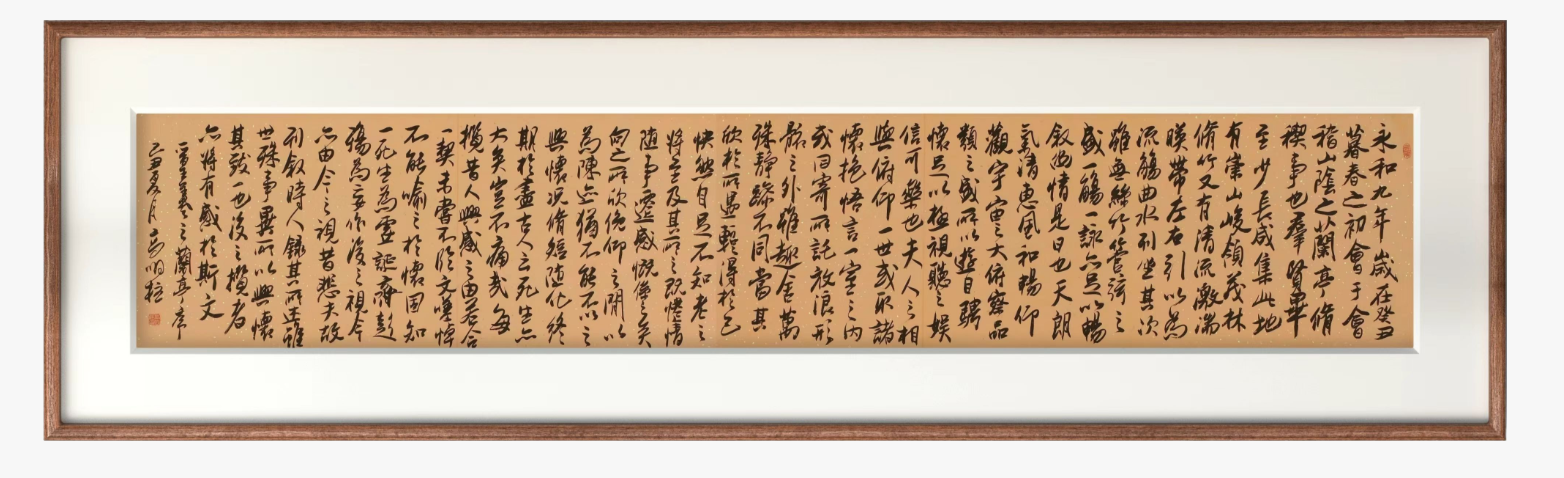 永和九年歲在癸丑
暮春之初會于會
稽山陰之蘭亭脩
禊事也羣賢畢
至少長咸集此地
有崇山峻領茂林
脩竹又有清流激湍
暎帶左右引以為
流觴曲水列坐其次
雖無絲竹管弦之
盛一觴一詠亦足以暢
敘幽情是日也天朗
氣清惠風和暢仰
觀宇宙之大俯察品
類之盛所以遊目騁
懷足以極視聽之娛
信可樂也夫人之相
與俯仰一世或取諸
懷抱悟言一室之內
或因寄所託放浪形
骸之外雖趣舍萬
殊靜躁不同當其
欣於所遇暫得於己
快然自足不知老之
將至及其所之既惓情
隨事遷感慨係之矣
向之所欣俛仰之閒以
為陳迹猶不能不以之
興懷況脩短隨化終
期於盡古人云死生亦
大矣豈不痛哉每
攬昔人興感之由若合
一契未嘗不臨文嗟悼
不能喻之於懷固知
一死生為虛誕齊彭
殤為妄作後之視今
亦由今之視昔悲夫故
列敘時人錄其所述雖
世殊事異所以興懷
其致一也後之攬者
亦將有感於斯文
王羲之蘭亭序
丑夏月